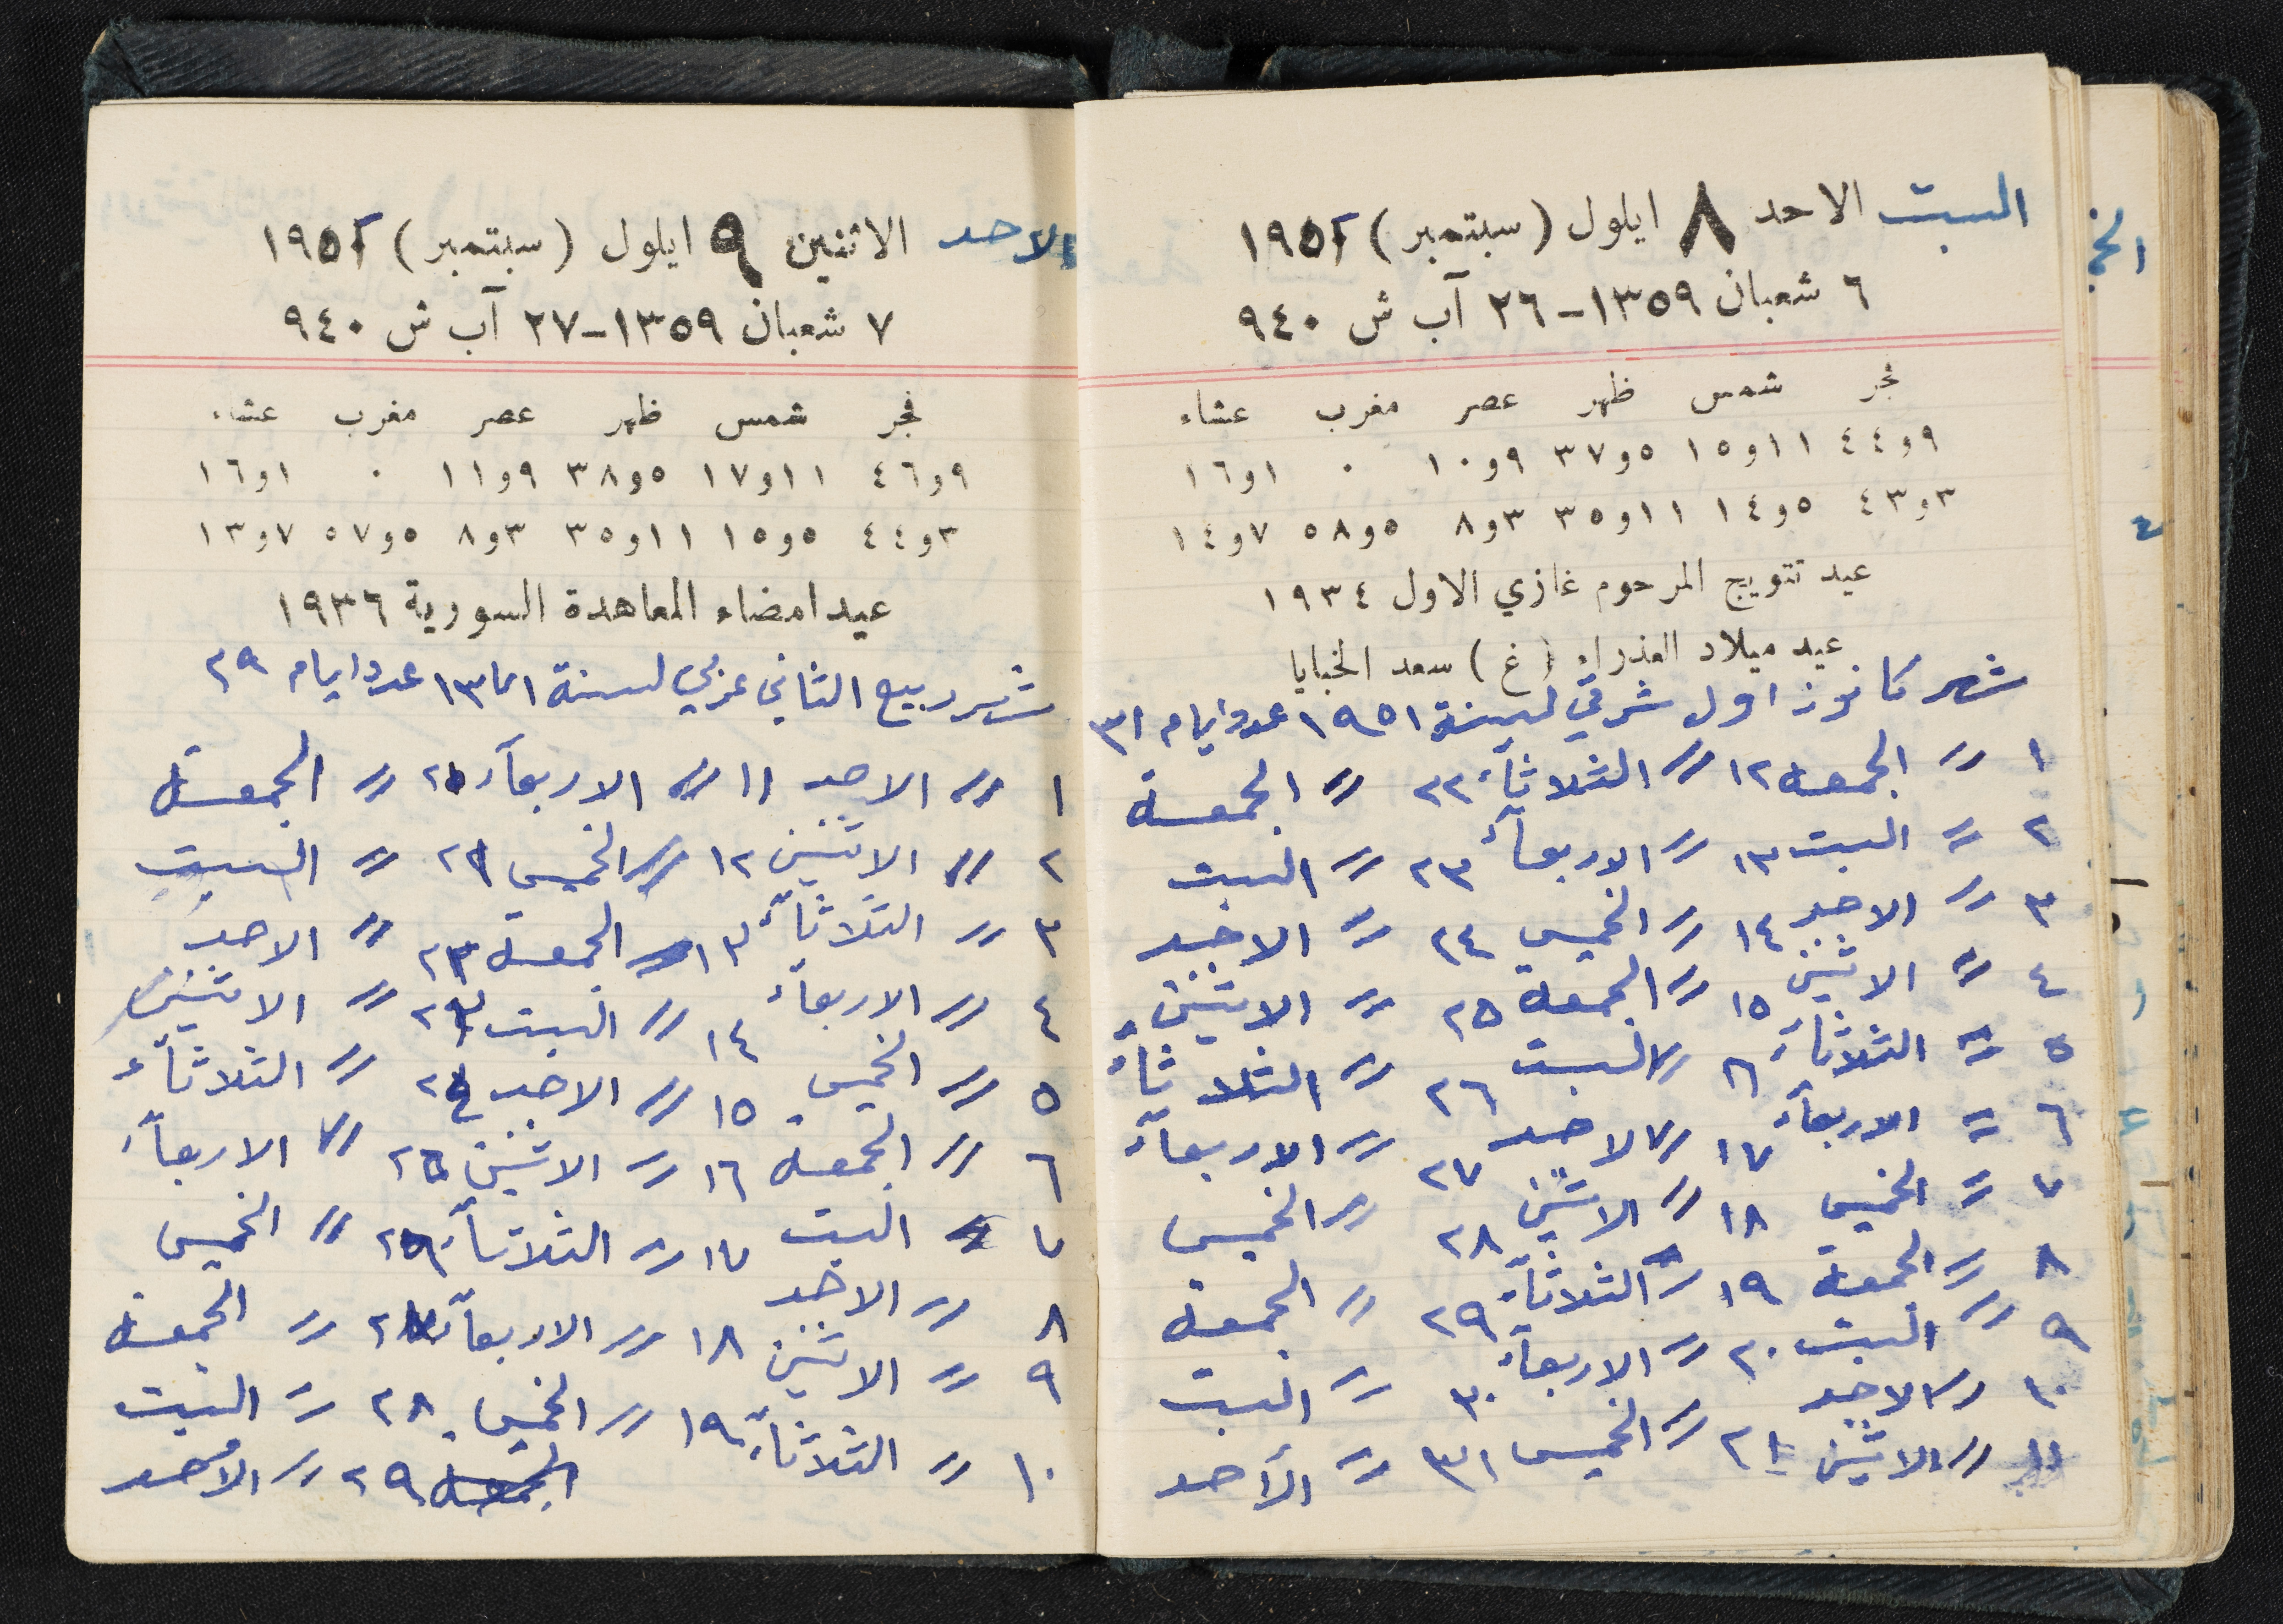 السبت الاحد ٨ ايلول (سبتمبر) ١٩٥١
٦ شعبان ١٣٥٩-٢٦ آب ش ٩٤٠
فجر شمس ظهر عصر مغرب عشاء
٩و٤٤ ١١و١٥ ٥و٣٧ ٩و١٠ ٠ ١و١٦
٣و٤٣ ٥و١٤ ١١و٣٥ ٣و٨ ٥و٥٨ ٧و١٤
عيد تتويج المرحوم غازي الاول ١٩٣٤
عيد ميلاد العذراء (غ) سعد الخبايا
شهر كانون اول شرقي لسنة ١٩٥١ عدد ايام ٣١
١ " الجمعة ١٢ " الثلاثآء ٢٢ " الجمعة
٢ " السبت ١٣ " الاربعآء ٢٣ " السبت
٣ " الاحد ١٤ " الخميس ٢٤ " الاحد
٤ " الاثنين ١٥ " الجمعة ٢٥ " الاثنين
٥ " الثلاثآء ١٦ " السبت ٢٦ " الثلاثآء
٦ " الاربعآء ١٧ " الاحد ٢٧ " الاربعآء
٧ " الخميس ١٨ " الاثنين ٢٨ " الخميس
٨ " الجمعة ١٩ " الثلاثآء ٢٩ " الجمعة
٩ " السبت ٢٠ " الاربعآء ٣٠ " السبت
١٠ " الاحد ٢١ " الخميس ٣١ " الأحد
١١ " الاثنين
الاحد الاثنين ٩ ايلول (سبتمبر) ١٩٥١
٧ شعبان ١٣٥٩-٢٧ آب ش ٩٤٠
فجر شمس ظهر عصر مغرب عشاء
٩و٤٦ ١١و١٧ ٥و٣٨ ٩و١١ ٠ ١و١٦
٣و٤٤ ٥و١٥ ١١و٣٥ ٣و٨ ٥و٥٧ ٧و١٣
عيد امضاء المعاهدة السورية ١٩٣٦
شهر ربيع الثاني عربي لسنة ١٣٧١ عدد ايام ٢٩
١ " الاحد ١١ " الاربعآء ٢٠ " الجمعة
٢ " الاثنين ١٢ " الخميس ٢١ " السبت
٣ " الثلاثآء ١٣ " الجمعة ٢٢ " الاحد
٤ " الاربعآء ١٤ " السبت ٢٣ " الاثنين
٥ " الخميس ١٥ " الاحد ٢٤ " الثلاثآء
٦ " الجمعة ١٦ " الاثنين ٢٥ " الاربعآء
٧ " السبت ١٧ " الثلاثآء ٢٦ " الخميس
٨ " الاحد ١٨ " الاربعآء ٢٧ " الجمعة
٩ " الاثنين ١٩ " الخميس ٢٨ " السبت
١٠ " الثلاثآء الجمعة ٢٩ " الأحد